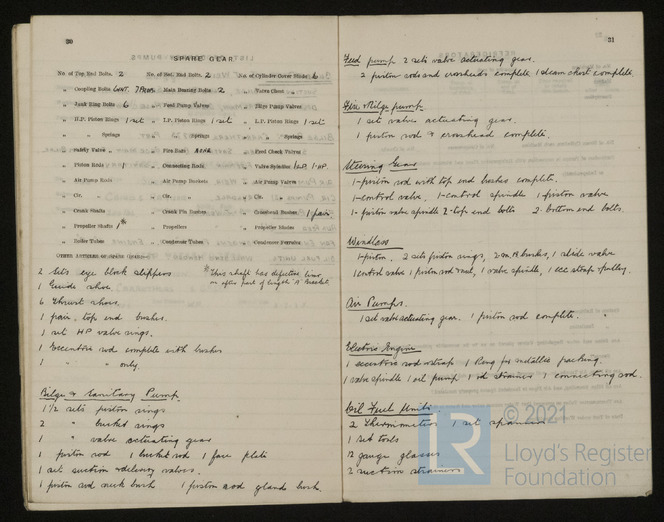 30
SPARE GEAR
No. of Top End Bolts. 2 No. of Bot. End Bolts. 2 No. of Cylinder Cover Studs 6
„ Coupling Bolts „ Main Bearing Bolts 2 „ Valve Chest „
„ Junk Ring Bolts 6 „ Feed Pump Valves „ Bilge Pump Valves
„ H.P. Piston Rings 1 set „ I.P. Piston Rings 1 set „ L.P. Piston Rings 1 set
„ „ Springs „ „ Springs „ „ Springs
„ Safety Valve „ „ Fire Bars NONE „ Feed Check Valves
„ Piston Rods 1 „ Connecting Rods „ Valve Spindles 1 LP. 1 HP.
„ Air Pump Rods „ Air Pump Buckets „ Air Pump Valves
„ Cir. „ „ Cir. „ „ Cir. „
„ Crank Shafts „ Crank Pin Bushes „ Crosshead Bushes 1 pair
„ Propeller Shafts 1 „ Propellers „ Propeller Blades
„ Boiler Tubes „ Condenser Tubes „ Condenser Ferrules
OTHER ARTICLES OF SPARE GEAR:—
2 sets eye block slippers
1 Guide shoe.
* This shaft has defective liner
on after part of length "A" Bracket
6 Thrust shoes.
1 pair. top end bushes.
1 set HP valve rings.
1 Eccentric rod complete with bushes
1 „ „ only
Bilge & Sanitary Pump
1½ sets piston rings
2 „ bucket rings
1 „ valve actuating gear
1 piston rod 1 bucket rod 1 face plate
1 set suction & delivery valves.
1 piston rod neck bush 1 piston rod gland bush.
31
Feed pump 2 sets valve actuating gear.
2 piston rods and crossheads complete 1 steam chest complete.
Fire & Bilge pump.
1 set valve actuating gear.
1 piston rod & crosshead complete.
Steering Gear
1-piston rod with top end bushes complete.
1-control valve, 1-control spindle 1 piston valve
1-piston valve spindle 2-top end bolts 2-bottom end bolts.
Windlass
1-piston. 2 sets piston rings, 2 bushes, 1 slide valve
1 control valve 1 piston rod & nut, 1 valve spindle, 1 ecc strap & pulley.
Air Pumps.
1 set valve actuating gear. 1 piston rod complete.
Electric Engine
1 eccentric rod & strap 1 Ring for metallic packing.
1 valve spindle 1 oil pump 1 oil strainer 1 connecting rod.
Oil Fuel Units.
2 Thermometers 1 set spanners
1 set tools
12 gauge glasses
2 suction strainers
LR
© 2021
Lloyd's Register
Foundation